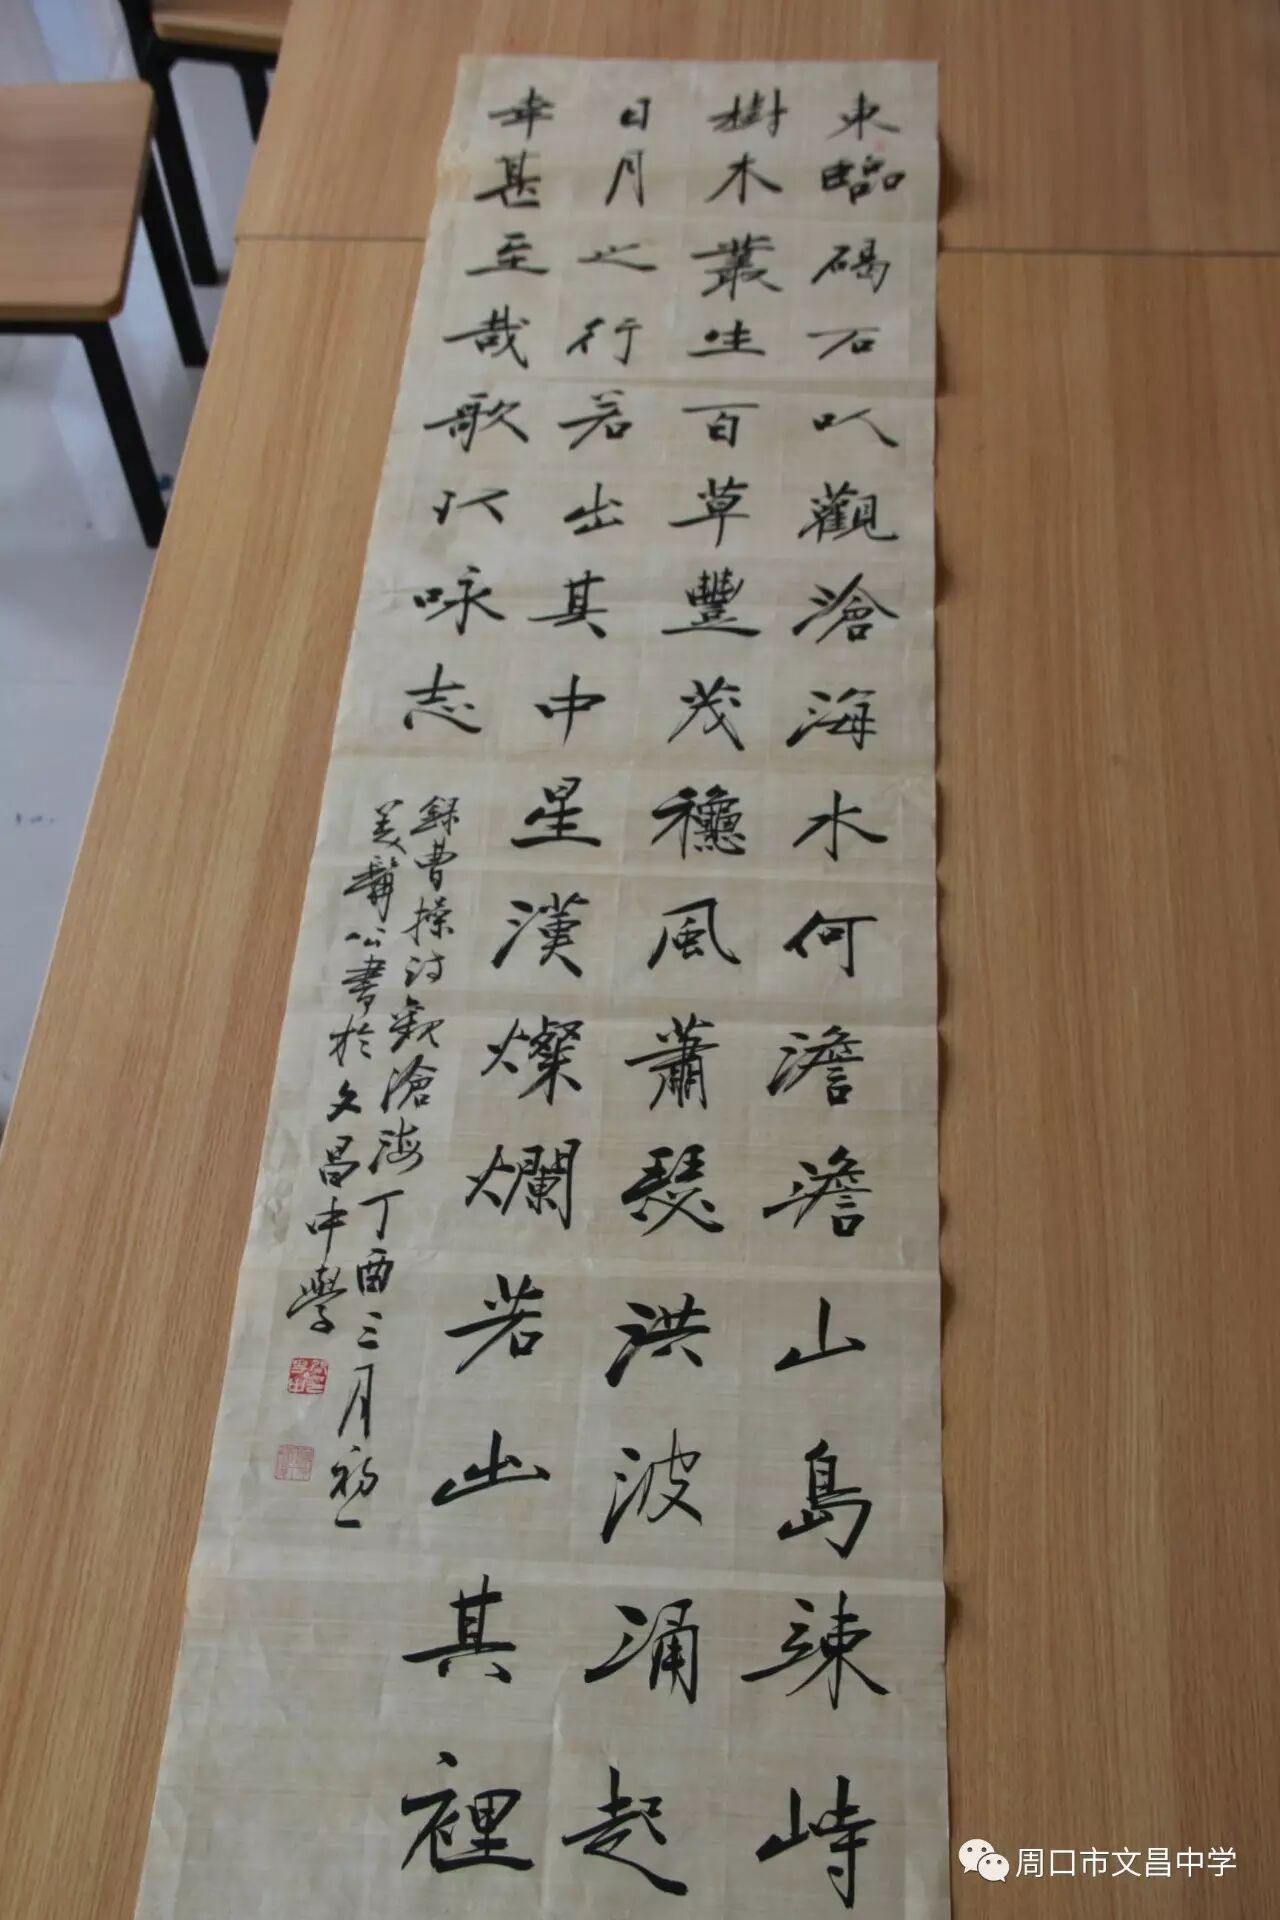 東臨碣石以觀滄海水何澹澹山島竦峙
樹木叢生百草豐茂穐風蕭瑟洪波涌起
日月之行若出其中星漢燦爛若出其裡
幸甚至哉歌以咏志
錄曹操诗觀滄海丁酉三月初一
美髯公書於文昌中學
周口市文昌中学